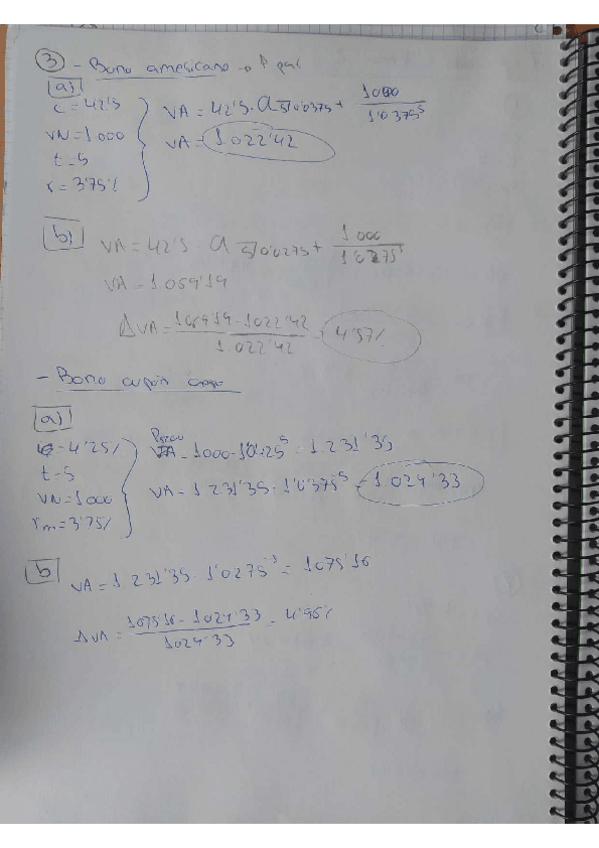 ③ - Bono americano → P par
a)
C = 42'5
VA = 42'5 · a 5̅|0'0375 + 1000 / 1'0375⁵
VN = 1000
VA = 1.022'42
t = 5
r = 3'75%
b)
VA = 42'5 · a 5̅|0'0275 + 1000 / 1'0275⁵
VA = 1.059'19
ΔVA = 1059'19 - 1022'42 / 1.022'42 = 4'57%
- Bono cupón
a)
= 4'25%
t = 5
VN = 1000
rm = 3'75%
VA = 1000 · 1'0425⁵ = 1.231'35
VA = 1 231'35 · 1'0375⁻⁵ = 1.024'33
b
VA = 1 231'35 · 1'0275⁻⁵ = 1075'16
ΔVA = 1075'16 - 1024'33 / 1024'33 = 4'95%